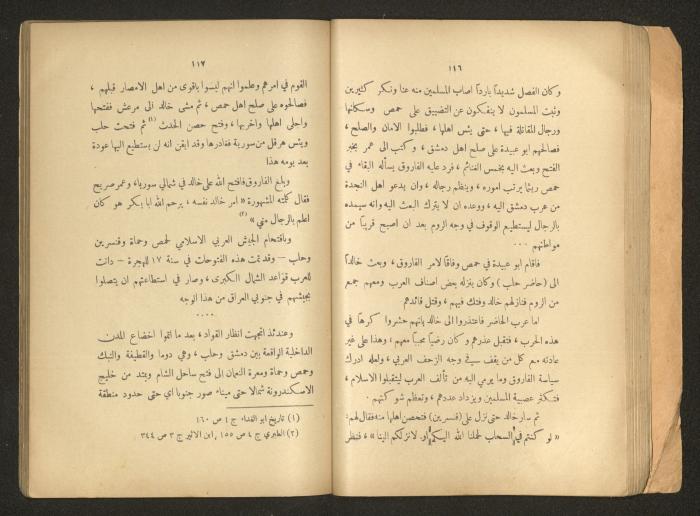 ١٤٦
وكان الفصل شديداً بارداً اصاب المسلمين منه عنا ونكر كثيرين
وثبت المسلمون لا ينفكون عن التضييق على حمص وسكانها
ورجال المقاتلة فيها ، حتى يئس اهلها ، فطلبوا الامان والصلح ،
فصالحهم ابو عبيدة على صلح اهل دمشق ، وكتب الى عمر بخبر
الفتح وبعث اليه بخمس الغنائم ، فرد عليه الفاروق يسأله البقاء في
حمص ريثما يرتب اموره ، وينظم رجاله ، وان يدعو اهل النجدة
من عرب دمشق اليه ، ووعده ان لا يترك البعث اليه وانه سيمده
بالرجال ليستطيع الوقوف في وجه الروم بعد ان اصبح قريباً من
مواطنهم ٠٠٠
فاقام ابو عبيدة في حمص وفاقاً لامر الفاروق ، وبعث خالداً
الى (حاضر حلب) وكان ينزله بعض اصناف العرب ومعهم جمع
من الروم فنازلهم خالد وفتك فيهم ، وقتل قائدهم
اما عرب الحاضر فاعتذروا الى خالد بانهم حشروا كرهاً في
هذه الحرب ، فتقبل عذرهم وكان رضياً محباً معهم ، وهذا على غير
عادته مع كل من يقف في وجه الزحف العربي ، ولعله ادرك
سياسة الفاروق وما يرمي اليه من تألف العرب ليتقبلوا الاسلام ،
فتكثر عصبية المسلمين ويزداد عددهم ، وتعظم شوكتهم ٠
ثم سار خالد حتى نزل على (قنسرين) فتحصن اهلها منه فقال لهم :
« لو كنتم في السحاب لحملنا الله اليكم او لانزلكم الينا » ، فنظر
١١٧
القوم في امرهم وعلموا انهم ليسوا باقوى من اهل الامصار قبلهم ،
فصالحوه على صلح اهل حمص ، ثم مشى خالد الى مرعش ففتحها
واجلى اهلها واخربها ، وفتح حصن الحدث (١) ثم فتحت حلب
ويئس هرقل من سورية فغادرها وقد ايقن انه لن يستطيع اليها عودة
بعد يومه هذا
وبلغ الفاروق فافتح الله على خالد في شمالي سورياء وعمر صريح
فقال كلمته المشهورة « امر خالد نفسه ، يرحم الله ابا بكر هو كان
اعلم بالرجال مني » (٢)
وباقتحام الجيش العربي الاسلامي لحمص وحماة وقنسرين
وحلب – وقد تمت هذه الفتوحات في سنة ١٧ للهجرة – دانت
للعرب قواعد الشمال الكبرى ، وصار في استطاعتهم ان يتصلوا
بجيشهم في جنوبي العراق من هذا الوجه
٠٠٠٠
وعندئذ اتجهت انظار القواد ، بعد ما اتموا اخضاع المدن
الداخلية الواقعة بين دمشق وحلب ، وهي دوما والقطيفة والنبك
وحمص وحماة ومعرة النعمان الى فتح ساحل الشام ويمتد من خليج
الاسكندرونة شمالا حتى ميناء صور جنوبا اي حتى حدود منطقة
(١) تاريخ ابو الفداء ج ١ ص ١٦٠
(٢) الطبري ج ٤ ص ١٥٥ ، ابن الاثير ج ٣ ص ٣٤٤